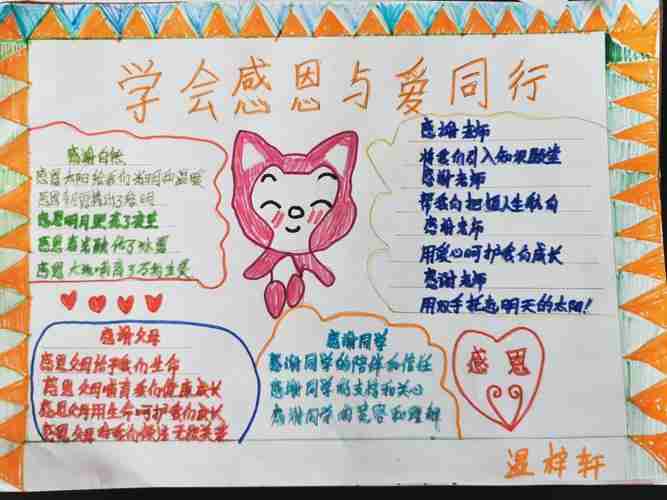 学会感恩与爱同行
感谢自然
感恩太阳给我们光明和温暖
感恩明月照亮了夜空
感恩春光融化了冰雪
感恩大地哺育了万物生灵
感谢老师
将我们引入知识殿堂
感谢老师
帮我们把握人生航向
感谢老师
用爱心呵护我们成长
感谢老师
用双手托起明天的太阳!
感谢父母
感恩父母给予我们生命
感恩父母哺育我们健康成长
感恩父母用生命呵护我们成长
感恩父母给我们倾注无限关爱
感谢同学
感谢同学的陪伴和信任
感谢同学的支持和关心
感谢同学的宽容和理解
感 恩
温梓轩